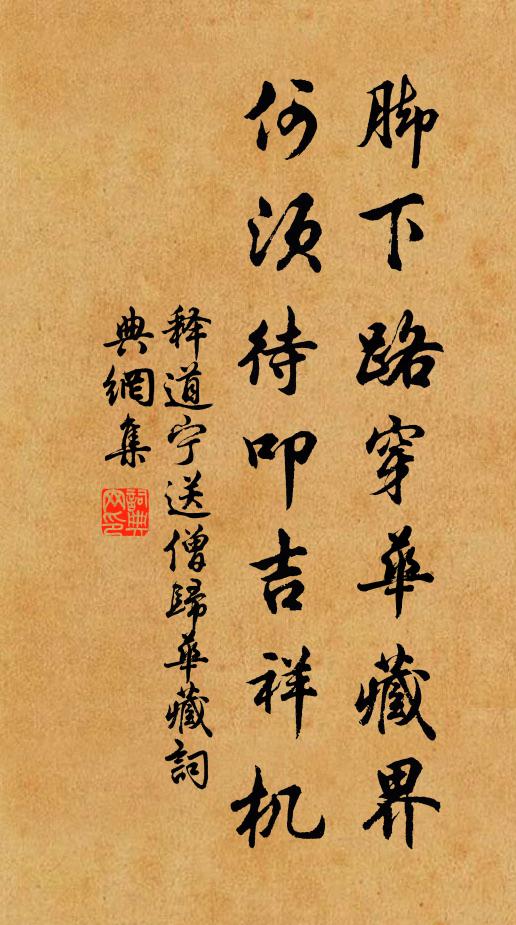 脚下路穿華藏界
何須待叩吉祥机
释道宁送僧歸華藏詞
典網集
詞典網印